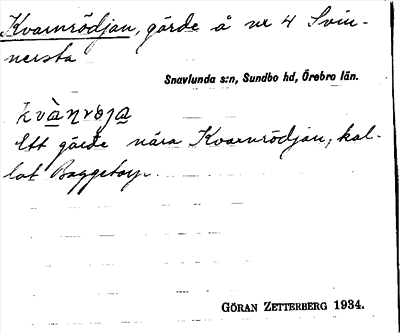 Kvarnrödjan, gärde å nr 4 Svin-
nersta
Snavlunda s:n, Sundbo hd, Örebro län.
Ett gärde nära Kvarnrödjan, kal-
lat Baggetorp.
GÖRAN ZETTERBERG 1934.